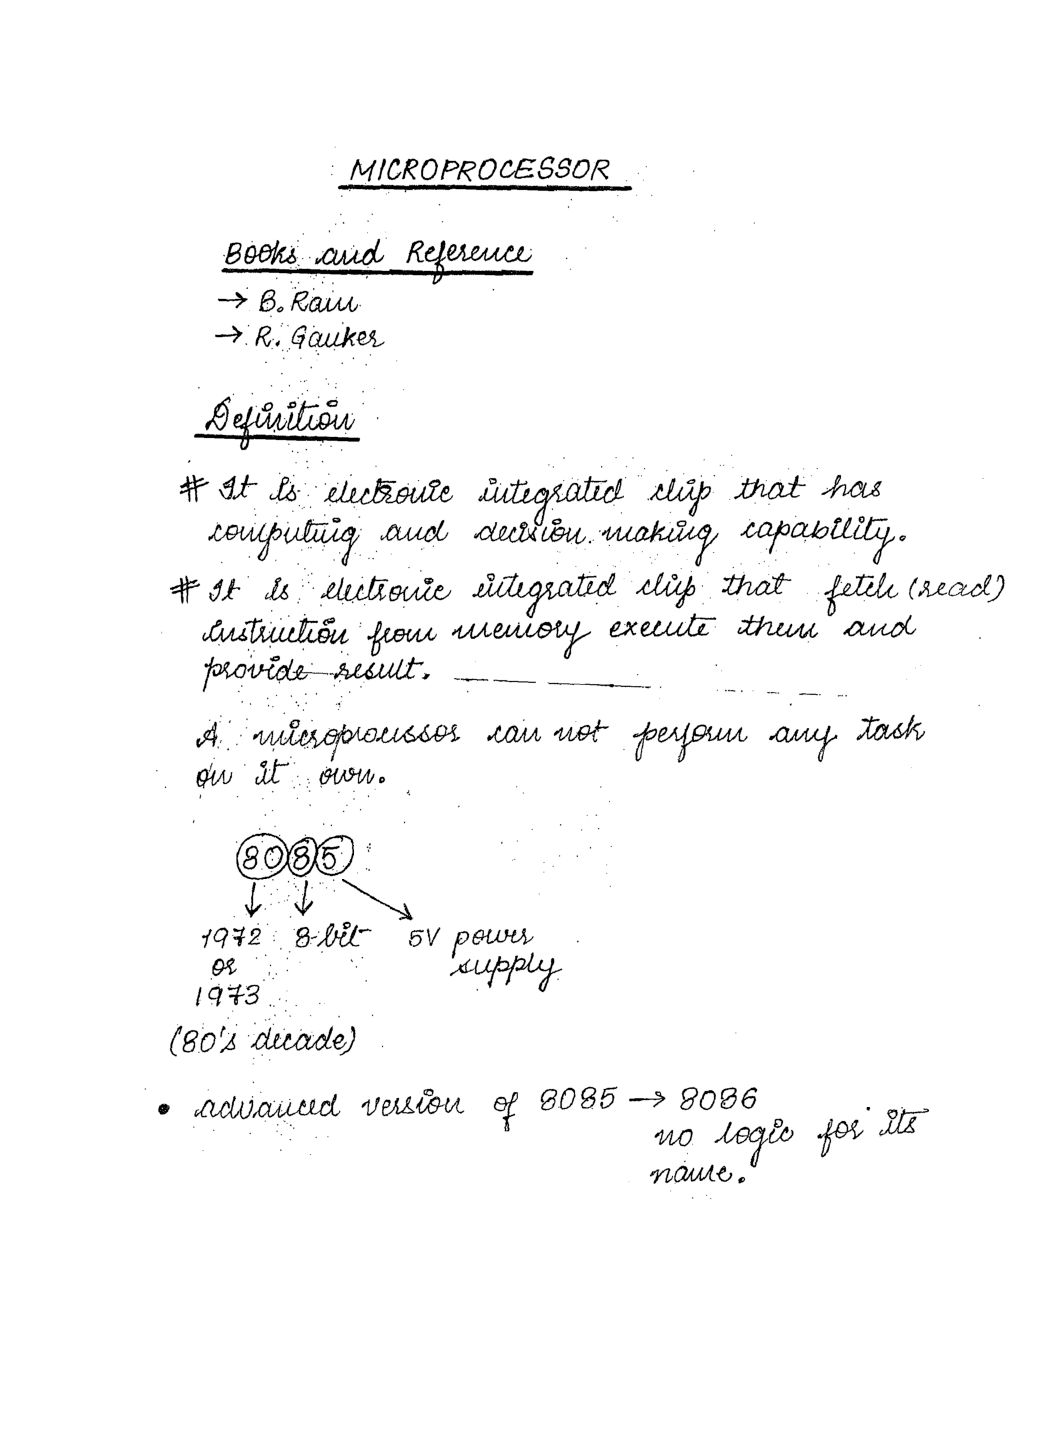 MICROPROCESSOR
Books and Reference
→ B. Ram
→ R. Gauker
Definition
# It is electronic integrated chip that has
computing and decision making capability.
# It is electronic integrated chip that fetch (read)
instruction from memory execute them and
provide result.
A microprocessor can not perform any task
on it own.
8085
1972 8-bit 5V power
or supply
1973
(80's decade)
• advanced version of 8085 → 8086
no logic for its
name.